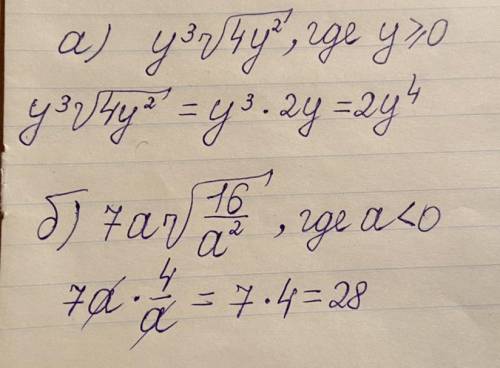 а) y³√4y², где y⩾0
y³√4y² = y³ · 2y = 2y⁴
б) 7a√16/a², где a<0
7a · 4/a = 7 · 4 = 28